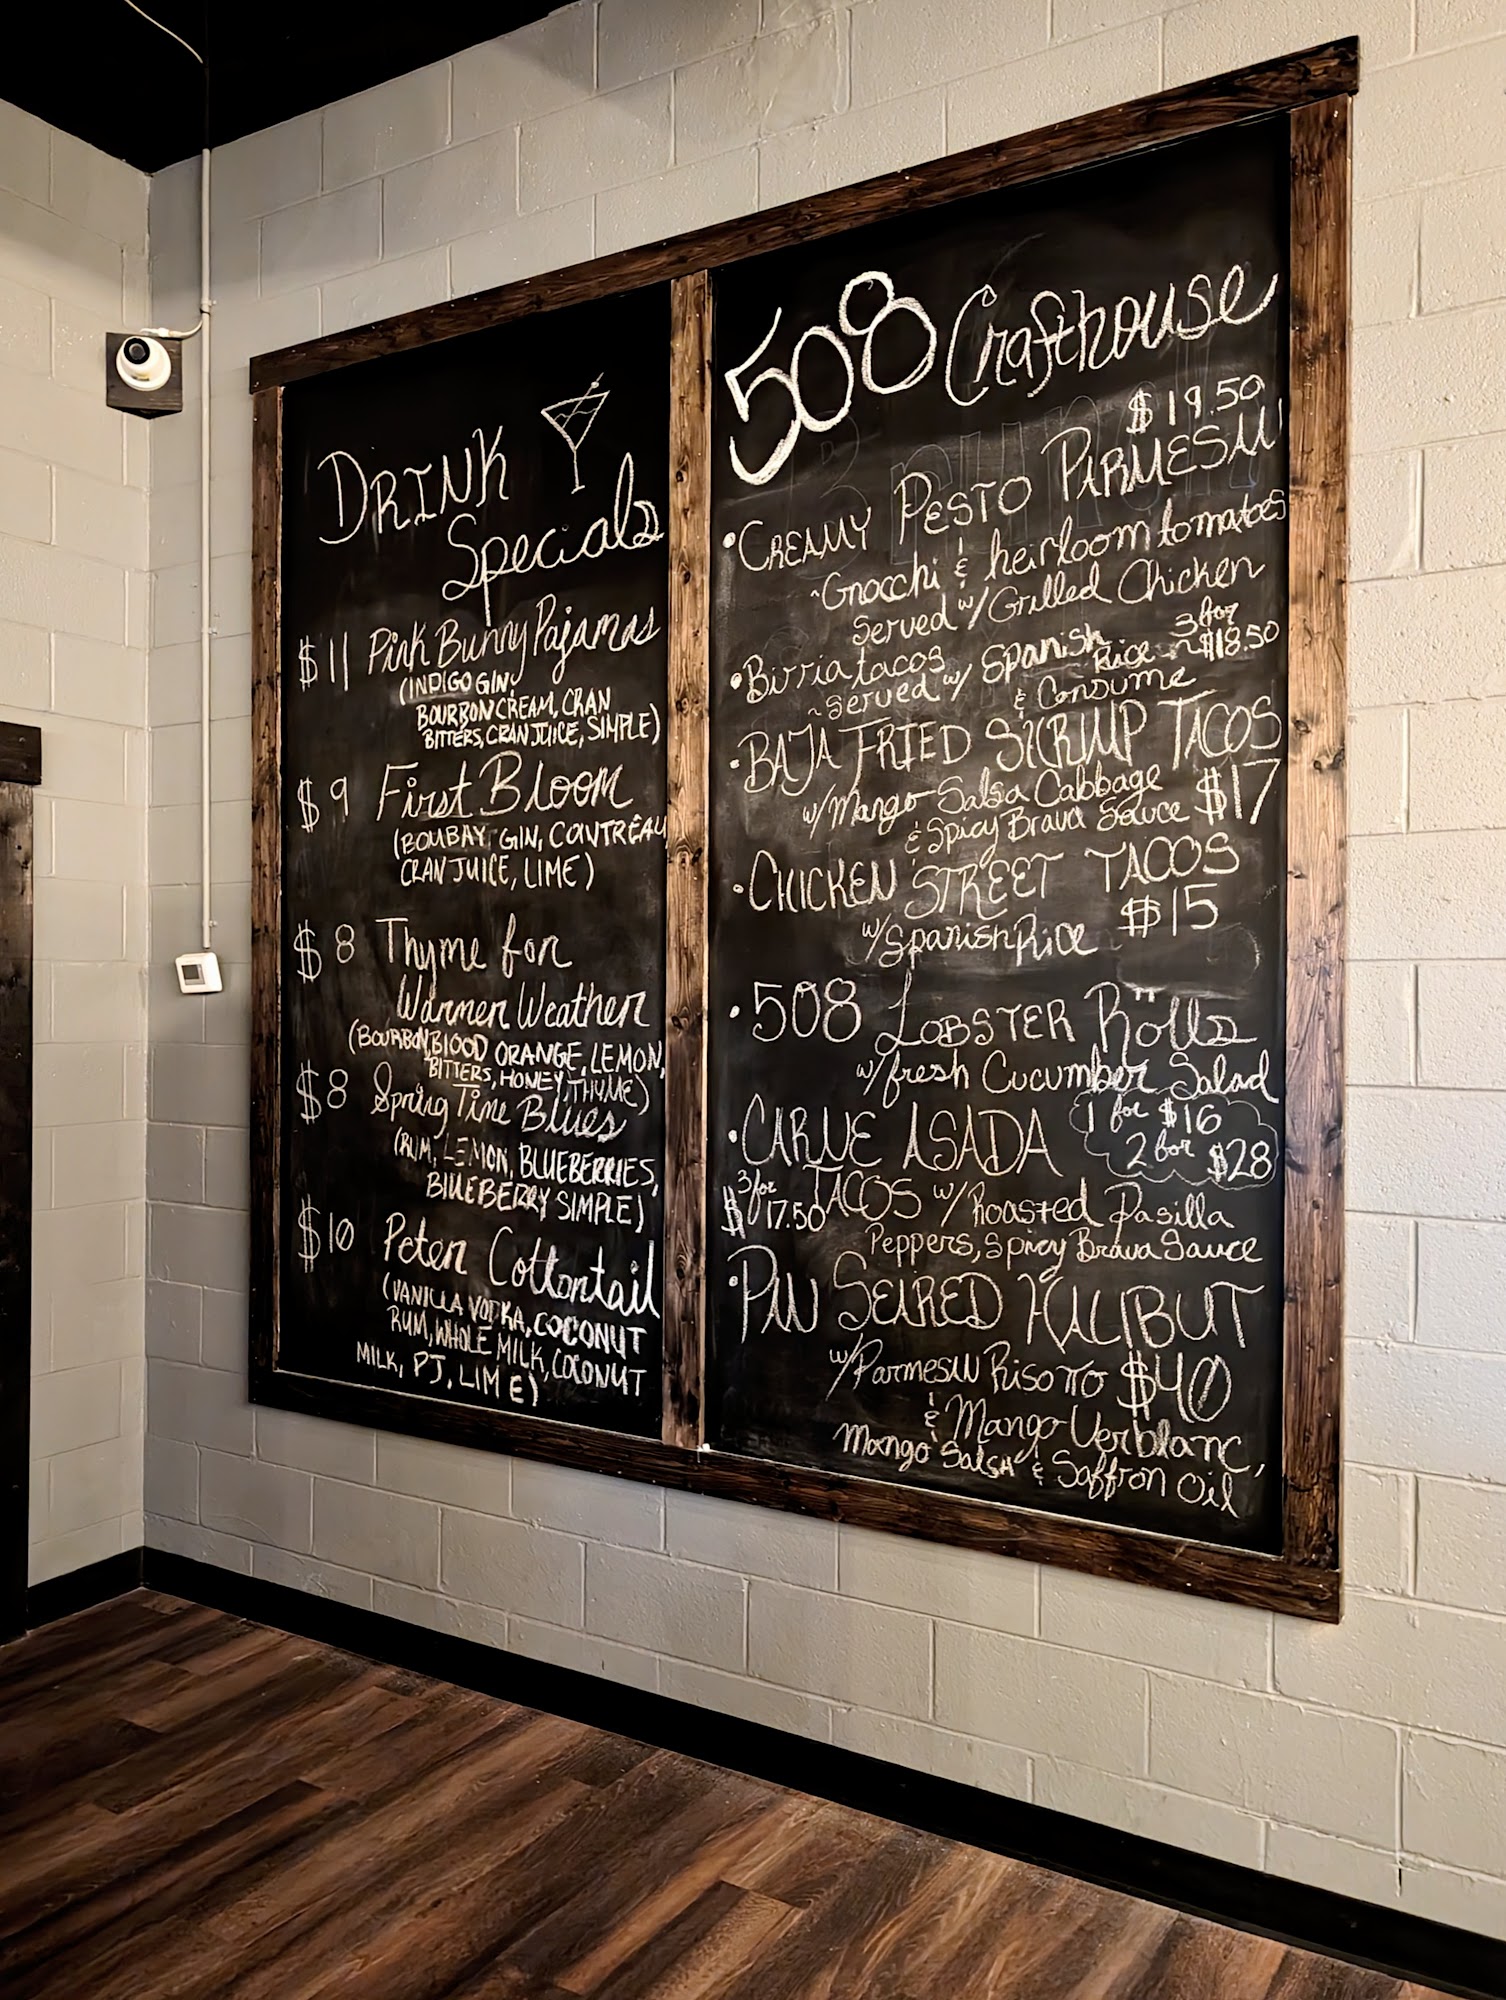 DRINK
Specials
$11 Pink Bunny Pajamas
(INDIGO GIN,
BOURBON CREAM, CRAN
BITTERS, CRAN JUICE, SIMPLE)
$9 First Bloom
(BOMBAY, GIN, COINTREAU
CRAN JUICE, LIME)
$8 Thyme for
Warmer Weather
(BOURBON, BLOOD ORANGE, LEMON,
BITTERS, HONEY, THYME)
$8 Spring Time Blues
(RUM, LEMON, BLUEBERRIES,
BLUEBERRY SIMPLE)
$10 Peter Cottontail
(VANILLA VODKA, COCONUT
RUM, WHOLE MILK, COCONUT
MILK, PJ, LIME)
508 Crafthouse
$19.50
• CREAMY PESTO PARMESAN
~Gnocchi & heirloom tomatoes
Served w/ Grilled Chicken
• Birria tacos 3 for
~served w/ Spanish Rice ~ $18.50
& Consume
• BAJA FRIED SHRIMP TACOS
w/ Mango Salsa Cabbage $17
& Spicy Brava Sauce
• CHICKEN STREET TACOS
w/ Spanish Rice $15
• 508 LOBSTER Rolls
w/ fresh Cucumber Salad
1 for $16
2 for $28
• CARNE ASADA
3 for $17.50 TACOS w/ Roasted Pasilla
Peppers, Spicy Brava Sauce
• PAN SEARED HALIBUT
w/ Parmesan Risotto $40
& Mango Verblanc,
Mango Salsa & Saffron Oil